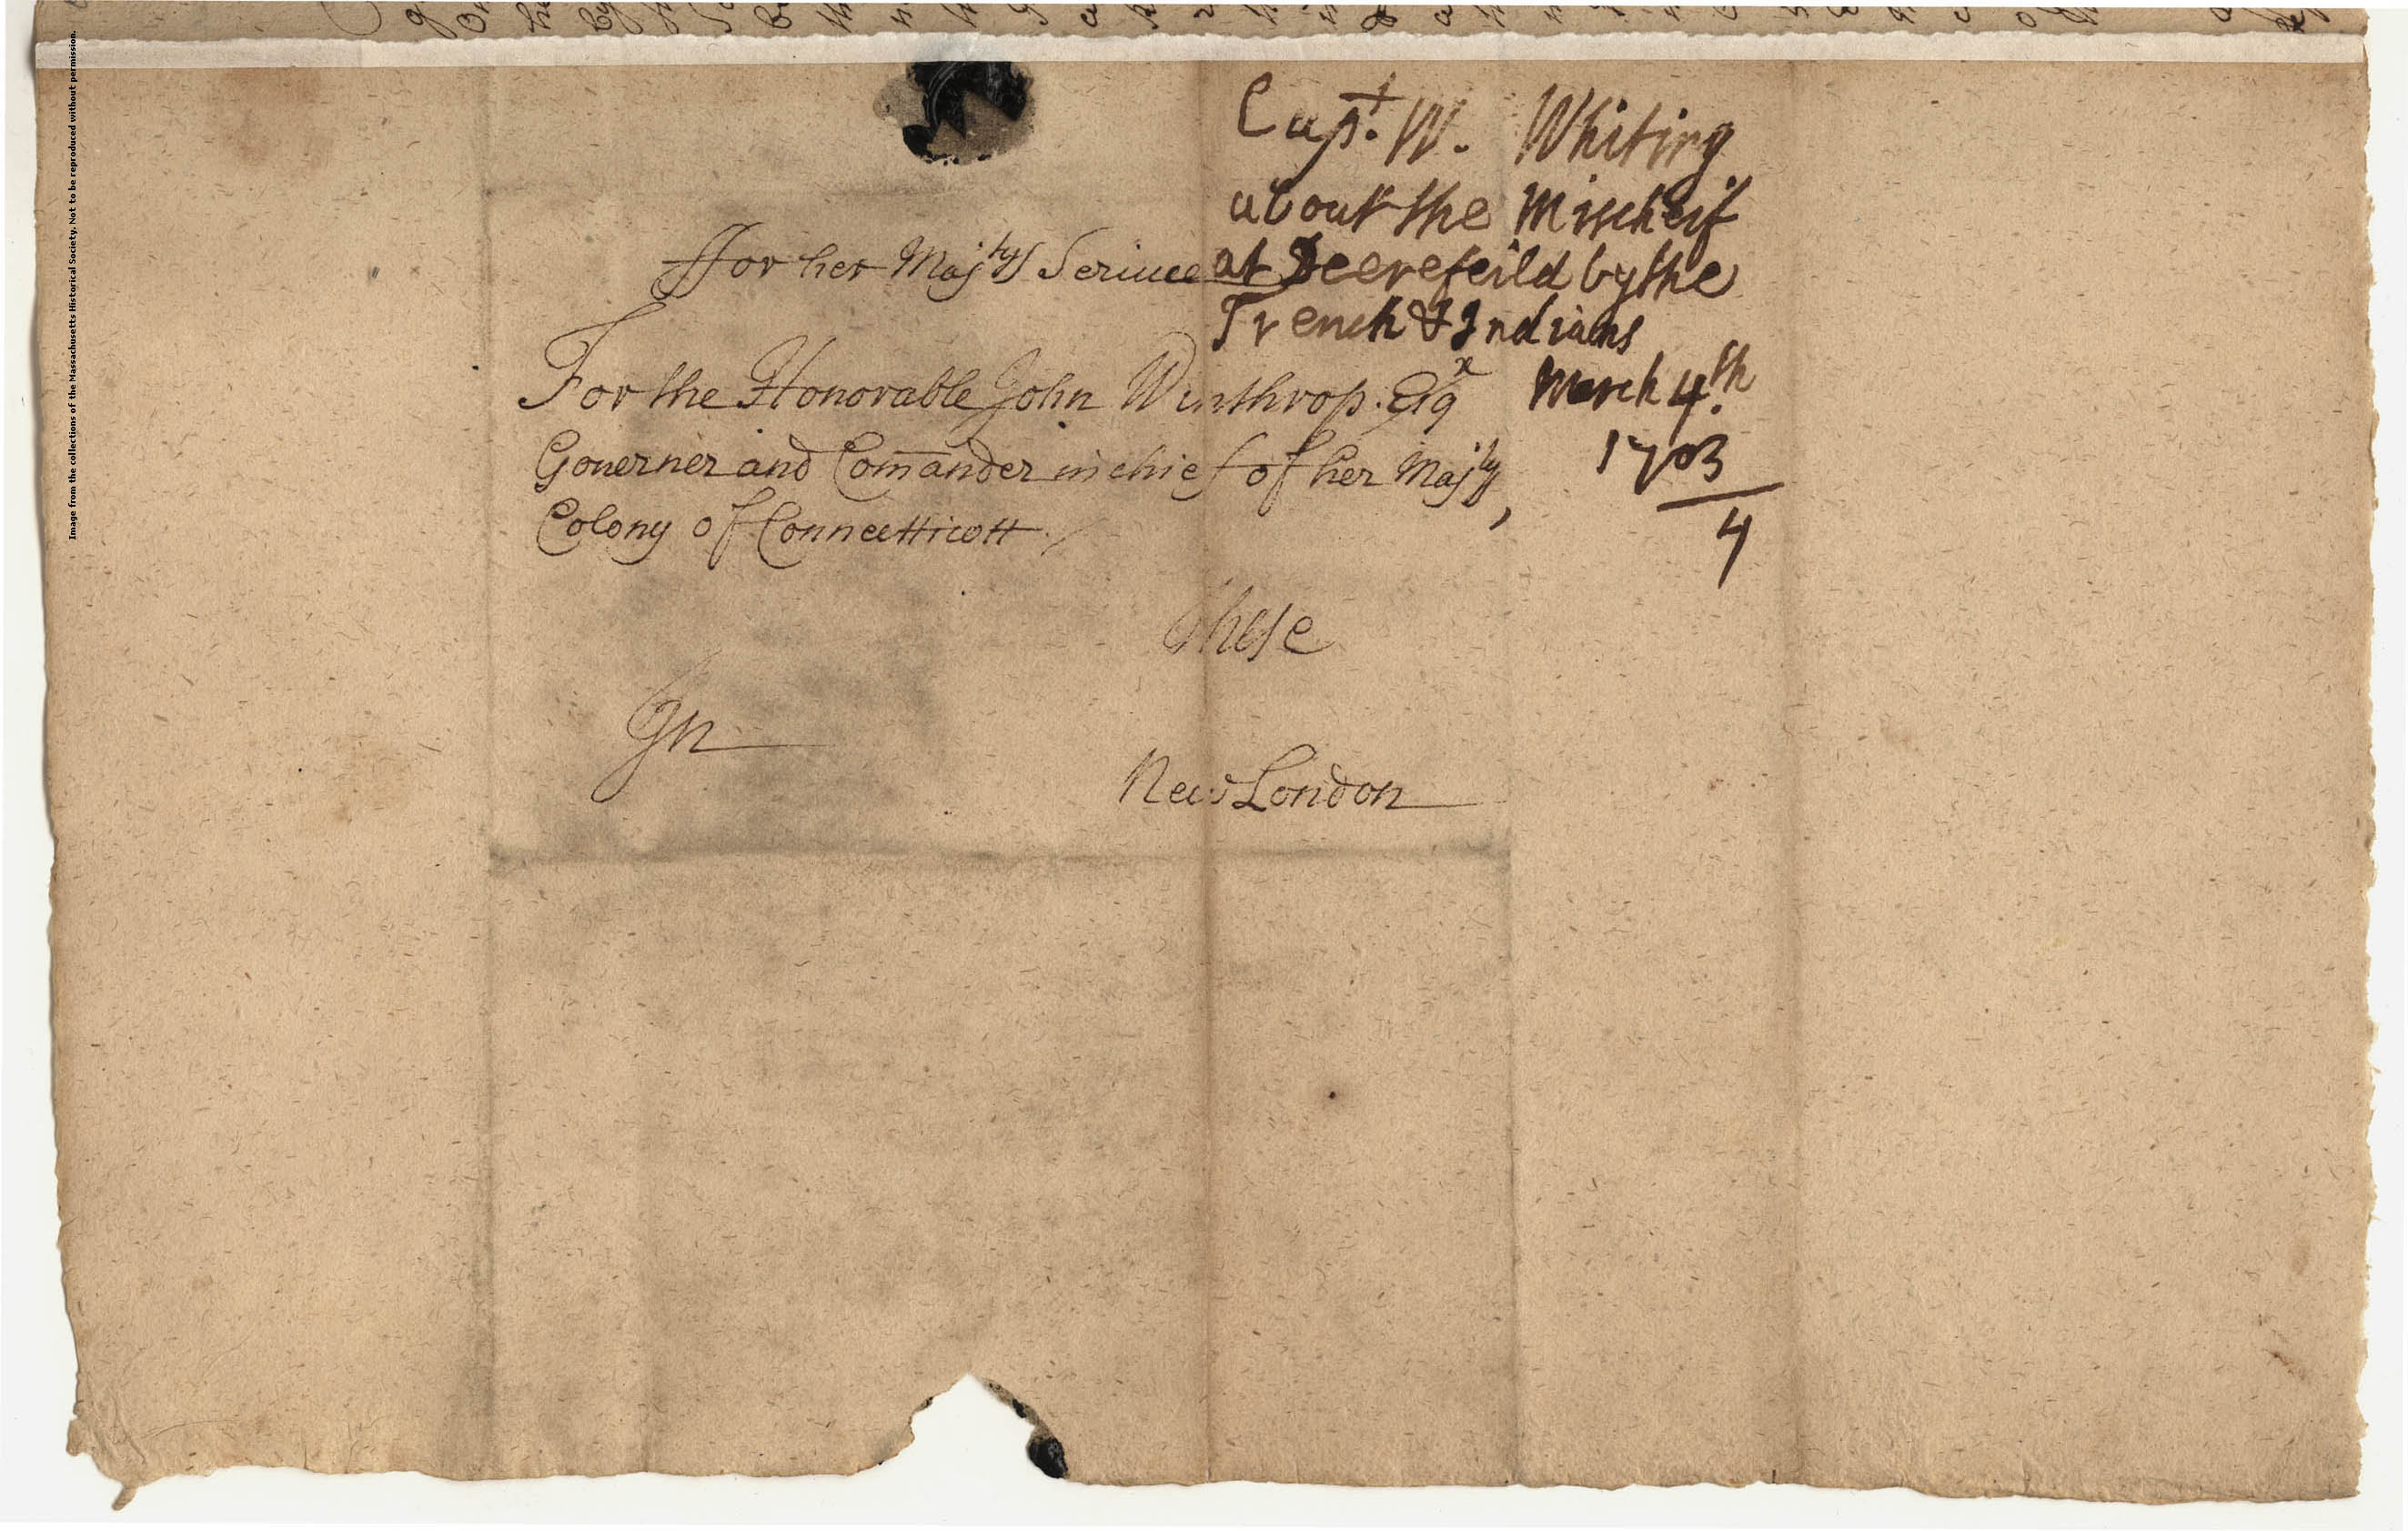 Capt. W. Whiting
about the Mischeif
at Deerefeild by the
French & Indians
March 4th.
1703
4
ffor her Majtys Seruice
For the Honorable John Winthrop. Esqr
Gouerner and Comander in chief of her Majtys
Colony of Connectticott
These
In
New London
Image from the collections of the Massachusetts Historical Society. Not to be reproduced without permission.